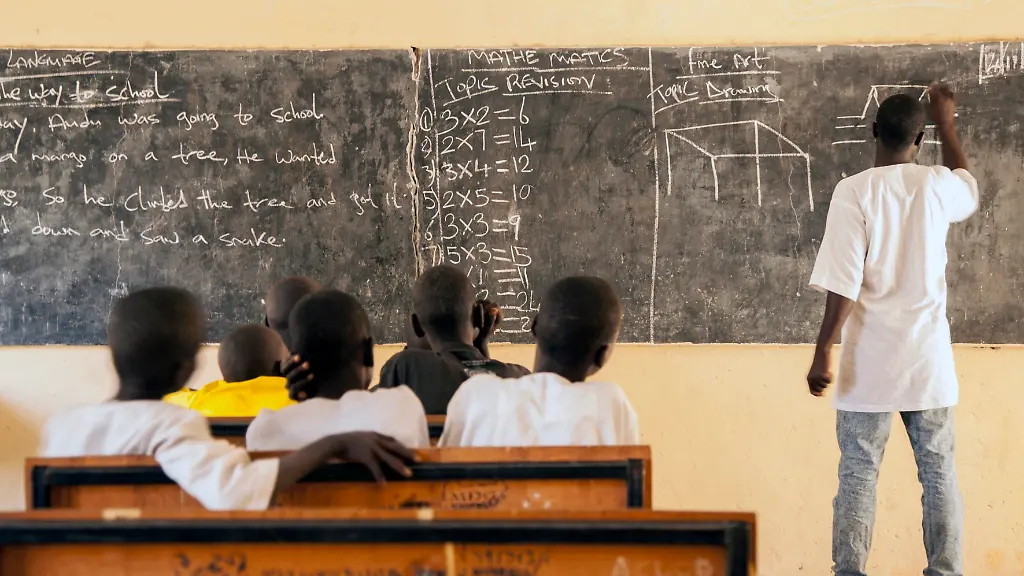 LANGUAGE
he way to school
ay, Audu was going to school
a mango on a tree, He wanted
So he climbed the tree and got it
down and saw a snake.
MATHEMATICS
TOPIC REVISION
1) 3×2=6
2) 2×7=14
3) 3×4=12
5) 2×5=10
6) 3×3=9
7) 5×3=15
Fine Art
TOPIC Drawing